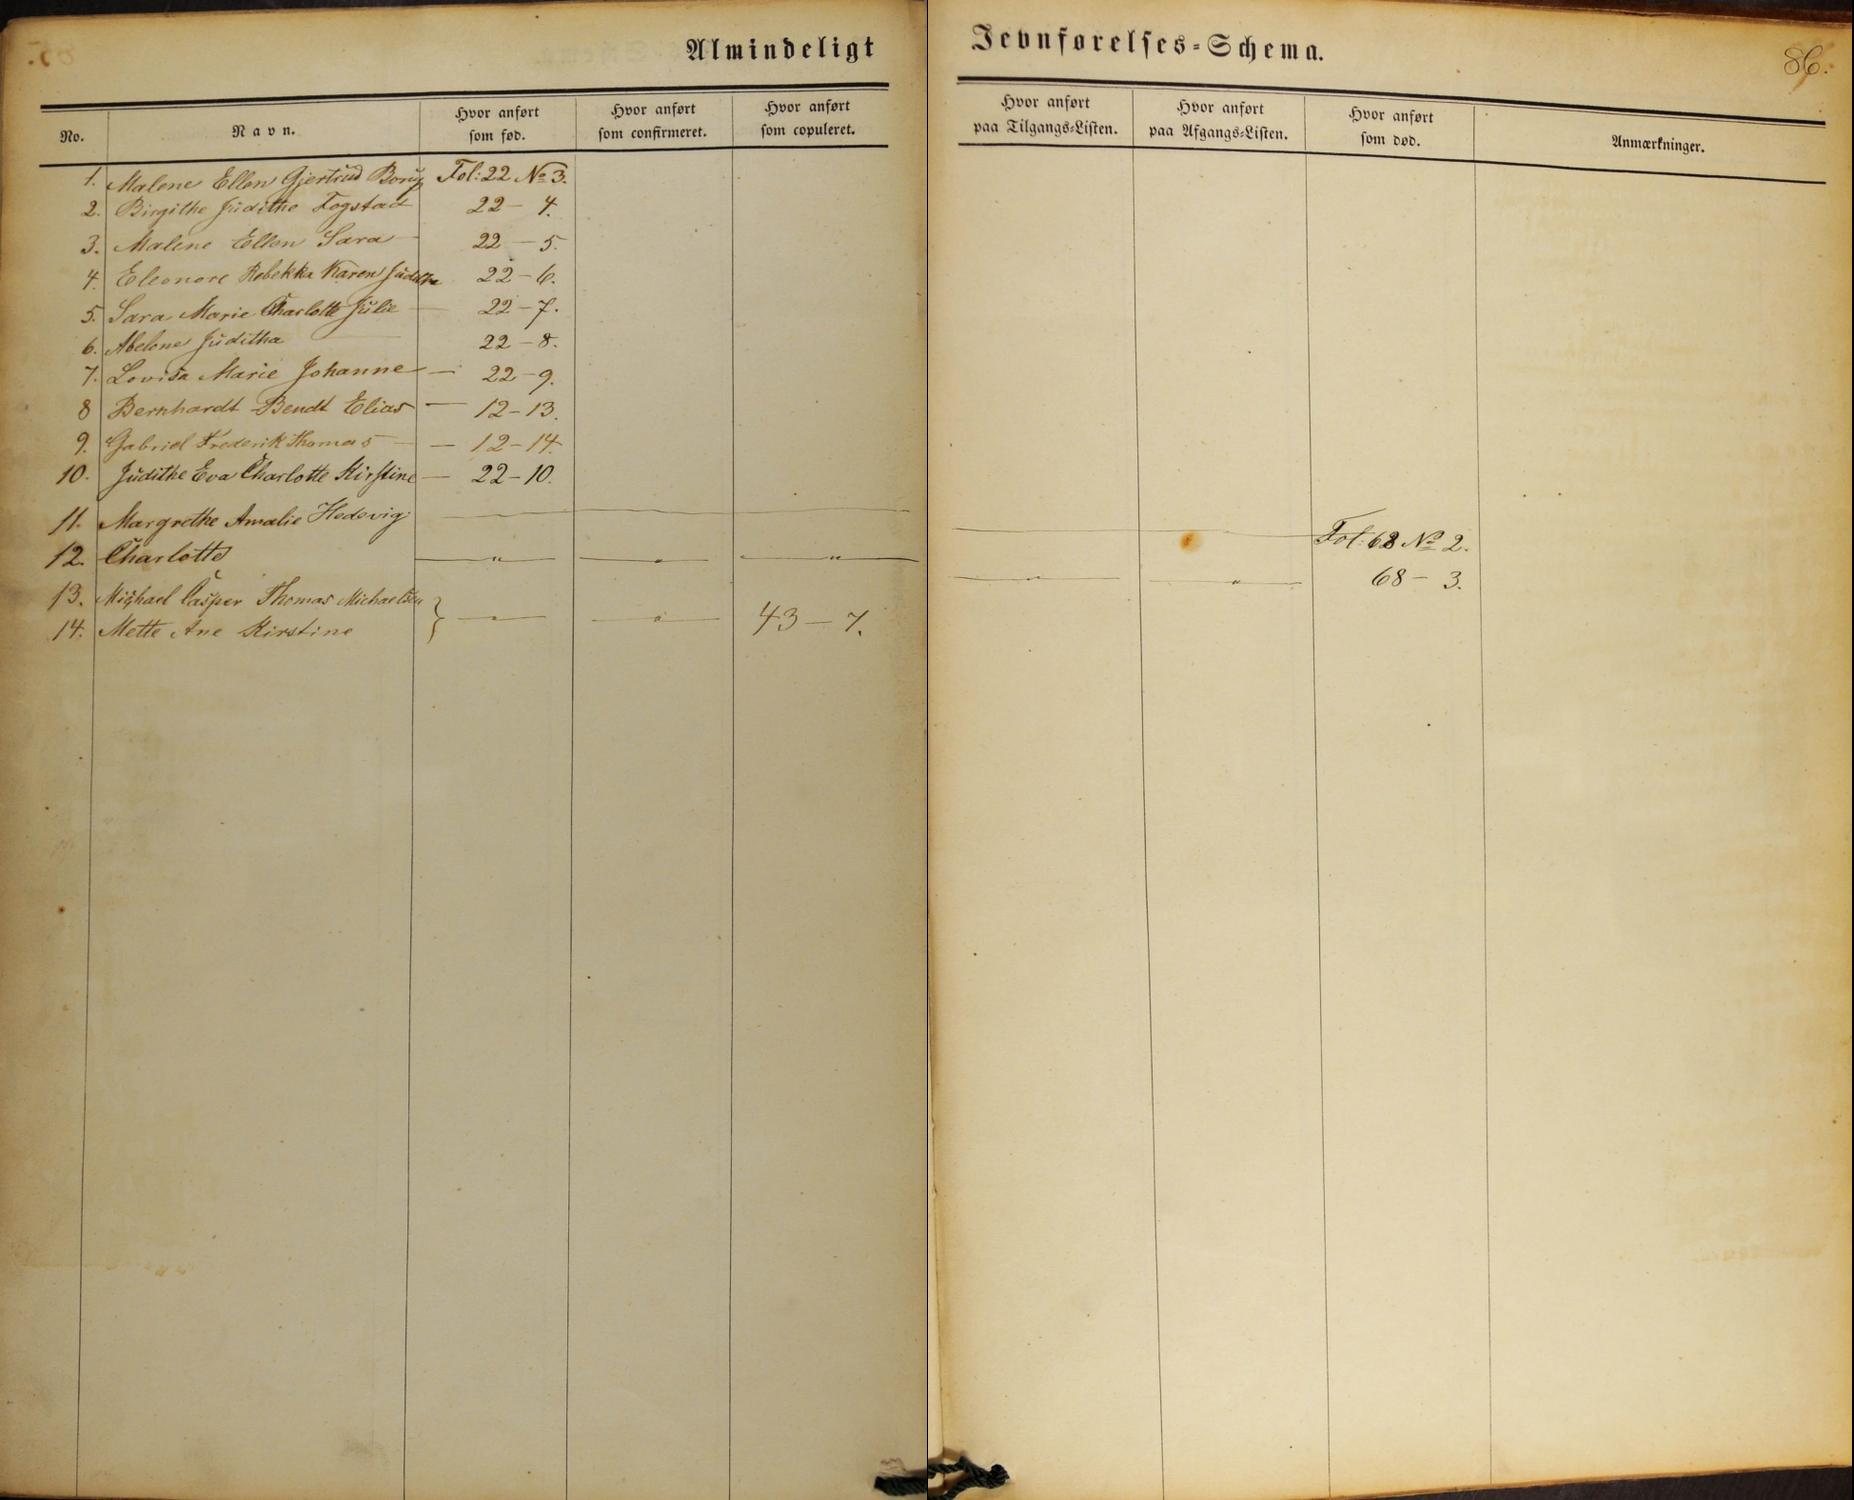 Almindeligt Jevnførelses-Schema.
86.
No.
Navn.
Hvor anført som fød.
Hvor anført som confirmeret.
Hvor anført som copuleret.
Hvor anført paa Tilgangs-Listen.
Hvor anført paa Afgangs-Listen.
Hvor anført som død.
Anmærkninger.
1. Malene Ellen Gjertrud Borup Fol: 22 No 3.
2. Birgithe Judithe Fogstad 22 – 4.
3. Malene Ellen Sara – 22 – 5.
4. Eleonore Rebekka Karen Judithe 22 – 6.
5. Sara Marie Charlotte Julie – 22 – 7.
6. Abelone Juditha – 22 – 8.
7. Lovisa Marie Johanne – 22 – 9.
8 Bernhardt Bendt Elias – 12 – 13.
9. Gabriel Frederik Thomas – 12 – 14.
10. Judithe Eva Charlotte Kirstine – 22 – 10.
11. Margrethe Amalie Hedevig – Fol: 68 No 2.
12. Charlotte – " – – " – – " – – " – – " – 68 – 3.
13. Michael Casper Thomas Michaelsen
14. Mette Ane Kirstine } – " – – " – 43 – 7.